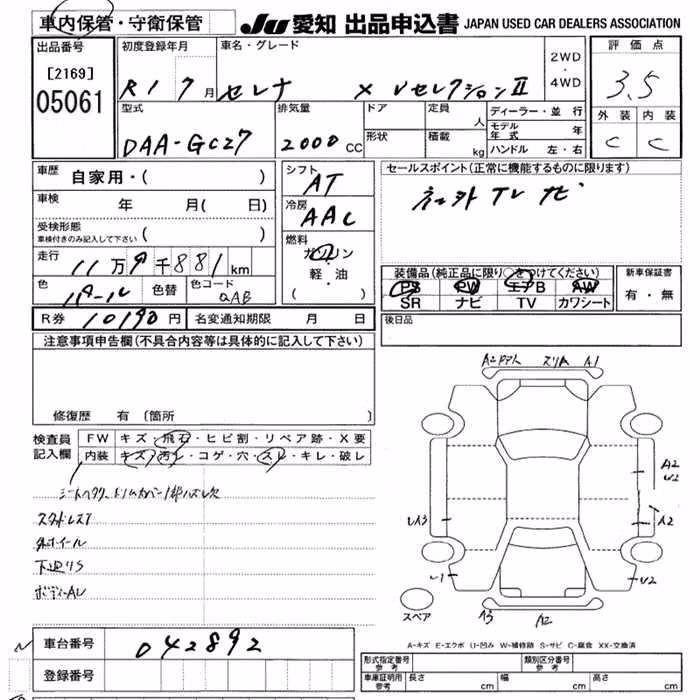 車内保管・守衛保管 JU 愛知 出品申込書 JAPAN USED CAR DEALERS ASSOCIATION
出品番号 [2169] 05061
初度登録年月 R1 7月
車名・グレード セレナ X Vセレクション II
2WD・4WD
評価点 3.5
外装 C 内装 C
型式 DAA-GC27
排気量 2000 CC
ドア 形状
定員 人 積載 kg
ディーラー・並行
モデル年式 年
ハンドル 左・右
車歴 自家用・( )
車検 年 月( 日)
受検形態 車検付きのみ記入して下さい ( )
走行 11万9千881km
色 パール 色替 色コード QAB
シフト AT
冷房 AAC
燃料 ガソリン・軽・油 ( )
セールスポイント(正常に機能するものに限ります)
TV ナビ
装備品(純正品に限り○をつけてください)
PS PW エアB AW
SR ナビ TV カワシート
新車保証書 有・無
R券 10190円 名変通知期限 月 日
後日品
注意事項申告欄(不具合内容等は具体的に記入して下さい)
修復歴 有 〔箇所 〕
検査員記入欄
FW キズ・飛石・ヒビ割・リペア跡・X要
内装 キズ・汚レ・コゲ・穴・スレ・キレ・破レ
スタッドレスT
外ホイール
下廻りS
ボディーAU
A1
A2
U2
A2
UA3
U1
U2
スペア
A3 A2
A-キズ E-エクボ U-凹み W-補修跡 S-サビ C-腐食 XX-交換済
車台番号 042892
登録番号
形式指定番号 参考 類別区分番号 参考
車庫証明用 参考 長さ cm 幅 cm 高さ cm